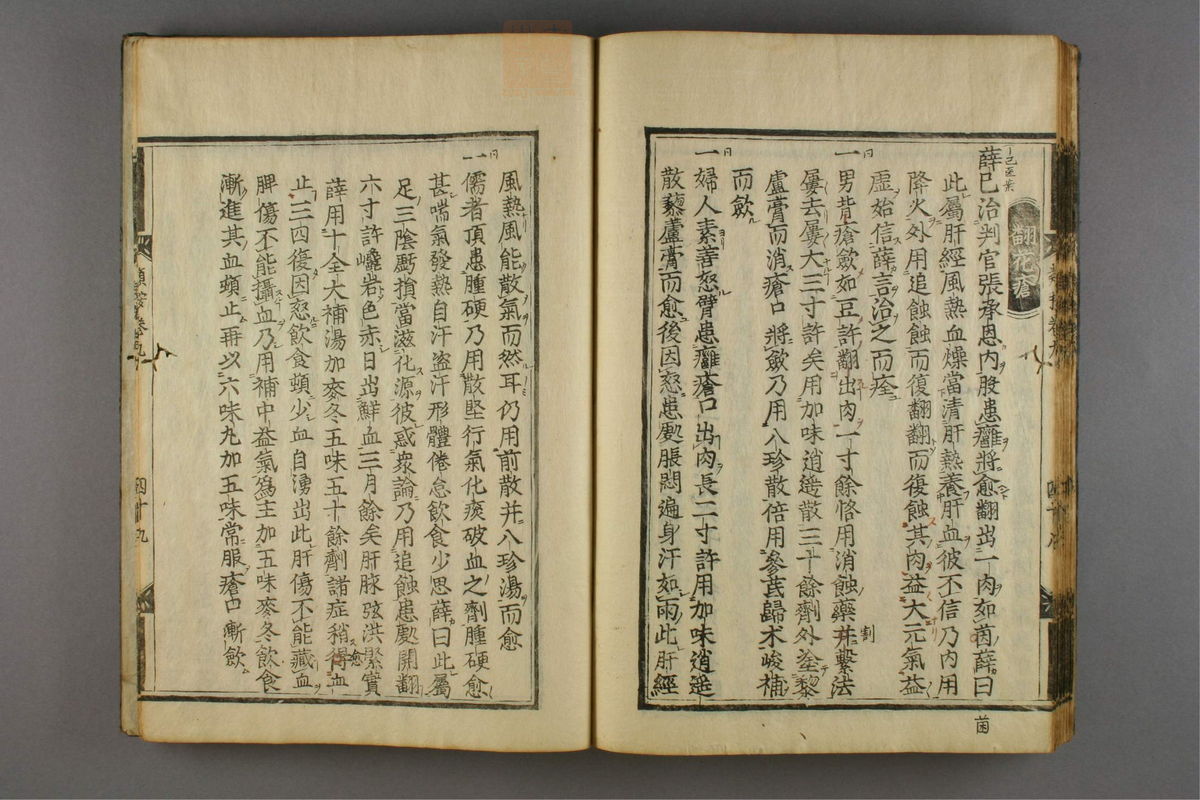 翻花瘡
薛已治判官張承恩内股患癰將愈翻出一肉如茵薛曰
此屬肝經風熱血燥當清肝熱養肝血彼不信乃内用
降火外用追蝕蝕而復翻翻而復蝕其肉益大元氣益
虛始信薛言治之而痊
一男背瘡斂如豆許翻出肉一寸餘恪用消蝕藥并繫法
屢去屢大三寸許矣用加味逍遙散三十餘劑外塗黎
盧膏而消瘡口將斂乃用八珍散倍用參芪歸朮峻補
而斂
一婦人素善怒臂患癰瘡口出肉長二寸許用加味逍遙
散藜蘆膏而愈後因怒患處脹悶遍身汗如雨此肝經
菌
四十九
風熱風能散氣而然耳仍用前散并八珍湯而愈
一儒者頂患腫硬乃用散堅行氣化痰破血之劑腫硬愈
甚喘氣發熱自汗盜汗形體倦怠飲食少思薛曰此屬
足三陰虧損當滋化源彼惑衆論乃用追蝕患處開翻
六寸許巉岩色赤日出鮮血三月餘矣肝脉弦洪緊實
薛用十全大補湯加麥冬五味五十餘劑諸症稍得血
止三四復因怒飲食頓少血自湧出此肝傷不能藏血
脾傷不能攝血乃用補中益氣爲主加五味麥冬飲食
漸進其血頓止再以六味丸加五味常服瘡口漸斂
四十九